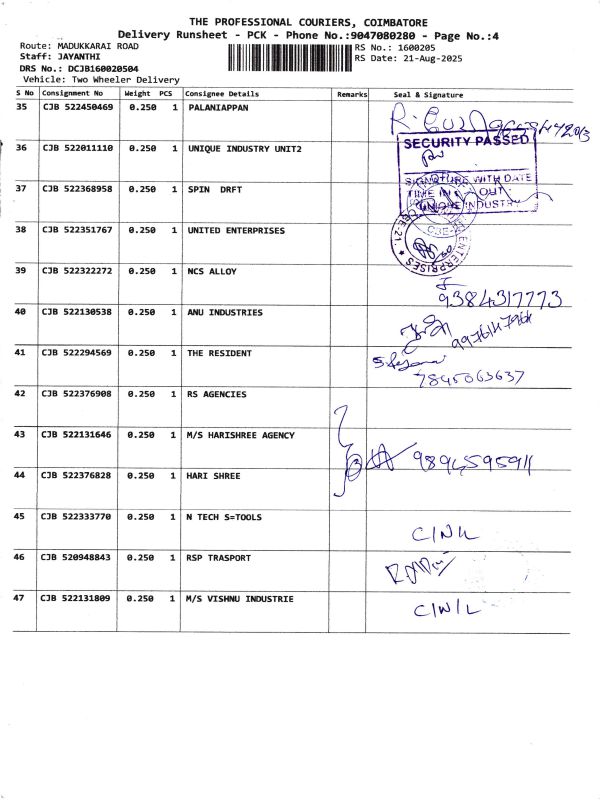 THE PROFESSIONAL COURIERS, COIMBATORE
Delivery Runsheet - PCK - Phone No.:9047080280 - Page No.:4
Route: MADUKKARAI ROAD RS No.: 1600205
Staff: JAYANTHI RS Date: 21-Aug-2025
DRS No.: DCJB160020504
Vehicle: Two Wheeler Delivery
S No Consignment No Weight PCS Consignee Details Remarks Seal & Signature
35 CJB 522450469 0.250 1 PALANIAPPAN
SECURITY PASSED
36 CJB 522011110 0.250 1 UNIQUE INDUSTRY UNIT2
SIGNATURE WITH DATE
37 CJB 522368958 0.250 1 SPIN DRFT
TIME IN OUT
UNIQUE INDUSTRY
38 CJB 522351767 0.250 1 UNITED ENTERPRISES
CBE-21. ENTERPRISES
39 CJB 522322272 0.250 1 NCS ALLOY
9384317773
40 CJB 522130538 0.250 1 ANU INDUSTRIES
41 CJB 522294569 0.250 1 THE RESIDENT
7845063637
42 CJB 522376908 0.250 1 RS AGENCIES
43 CJB 522131646 0.250 1 M/S HARISHREE AGENCY
9894595911
44 CJB 522376828 0.250 1 HARI SHREE
45 CJB 522333770 0.250 1 N TECH S=TOOLS
C/N/L
46 CJB 520948843 0.250 1 RSP TRASPORT
47 CJB 522131809 0.250 1 M/S VISHNU INDUSTRIE
C/N/L